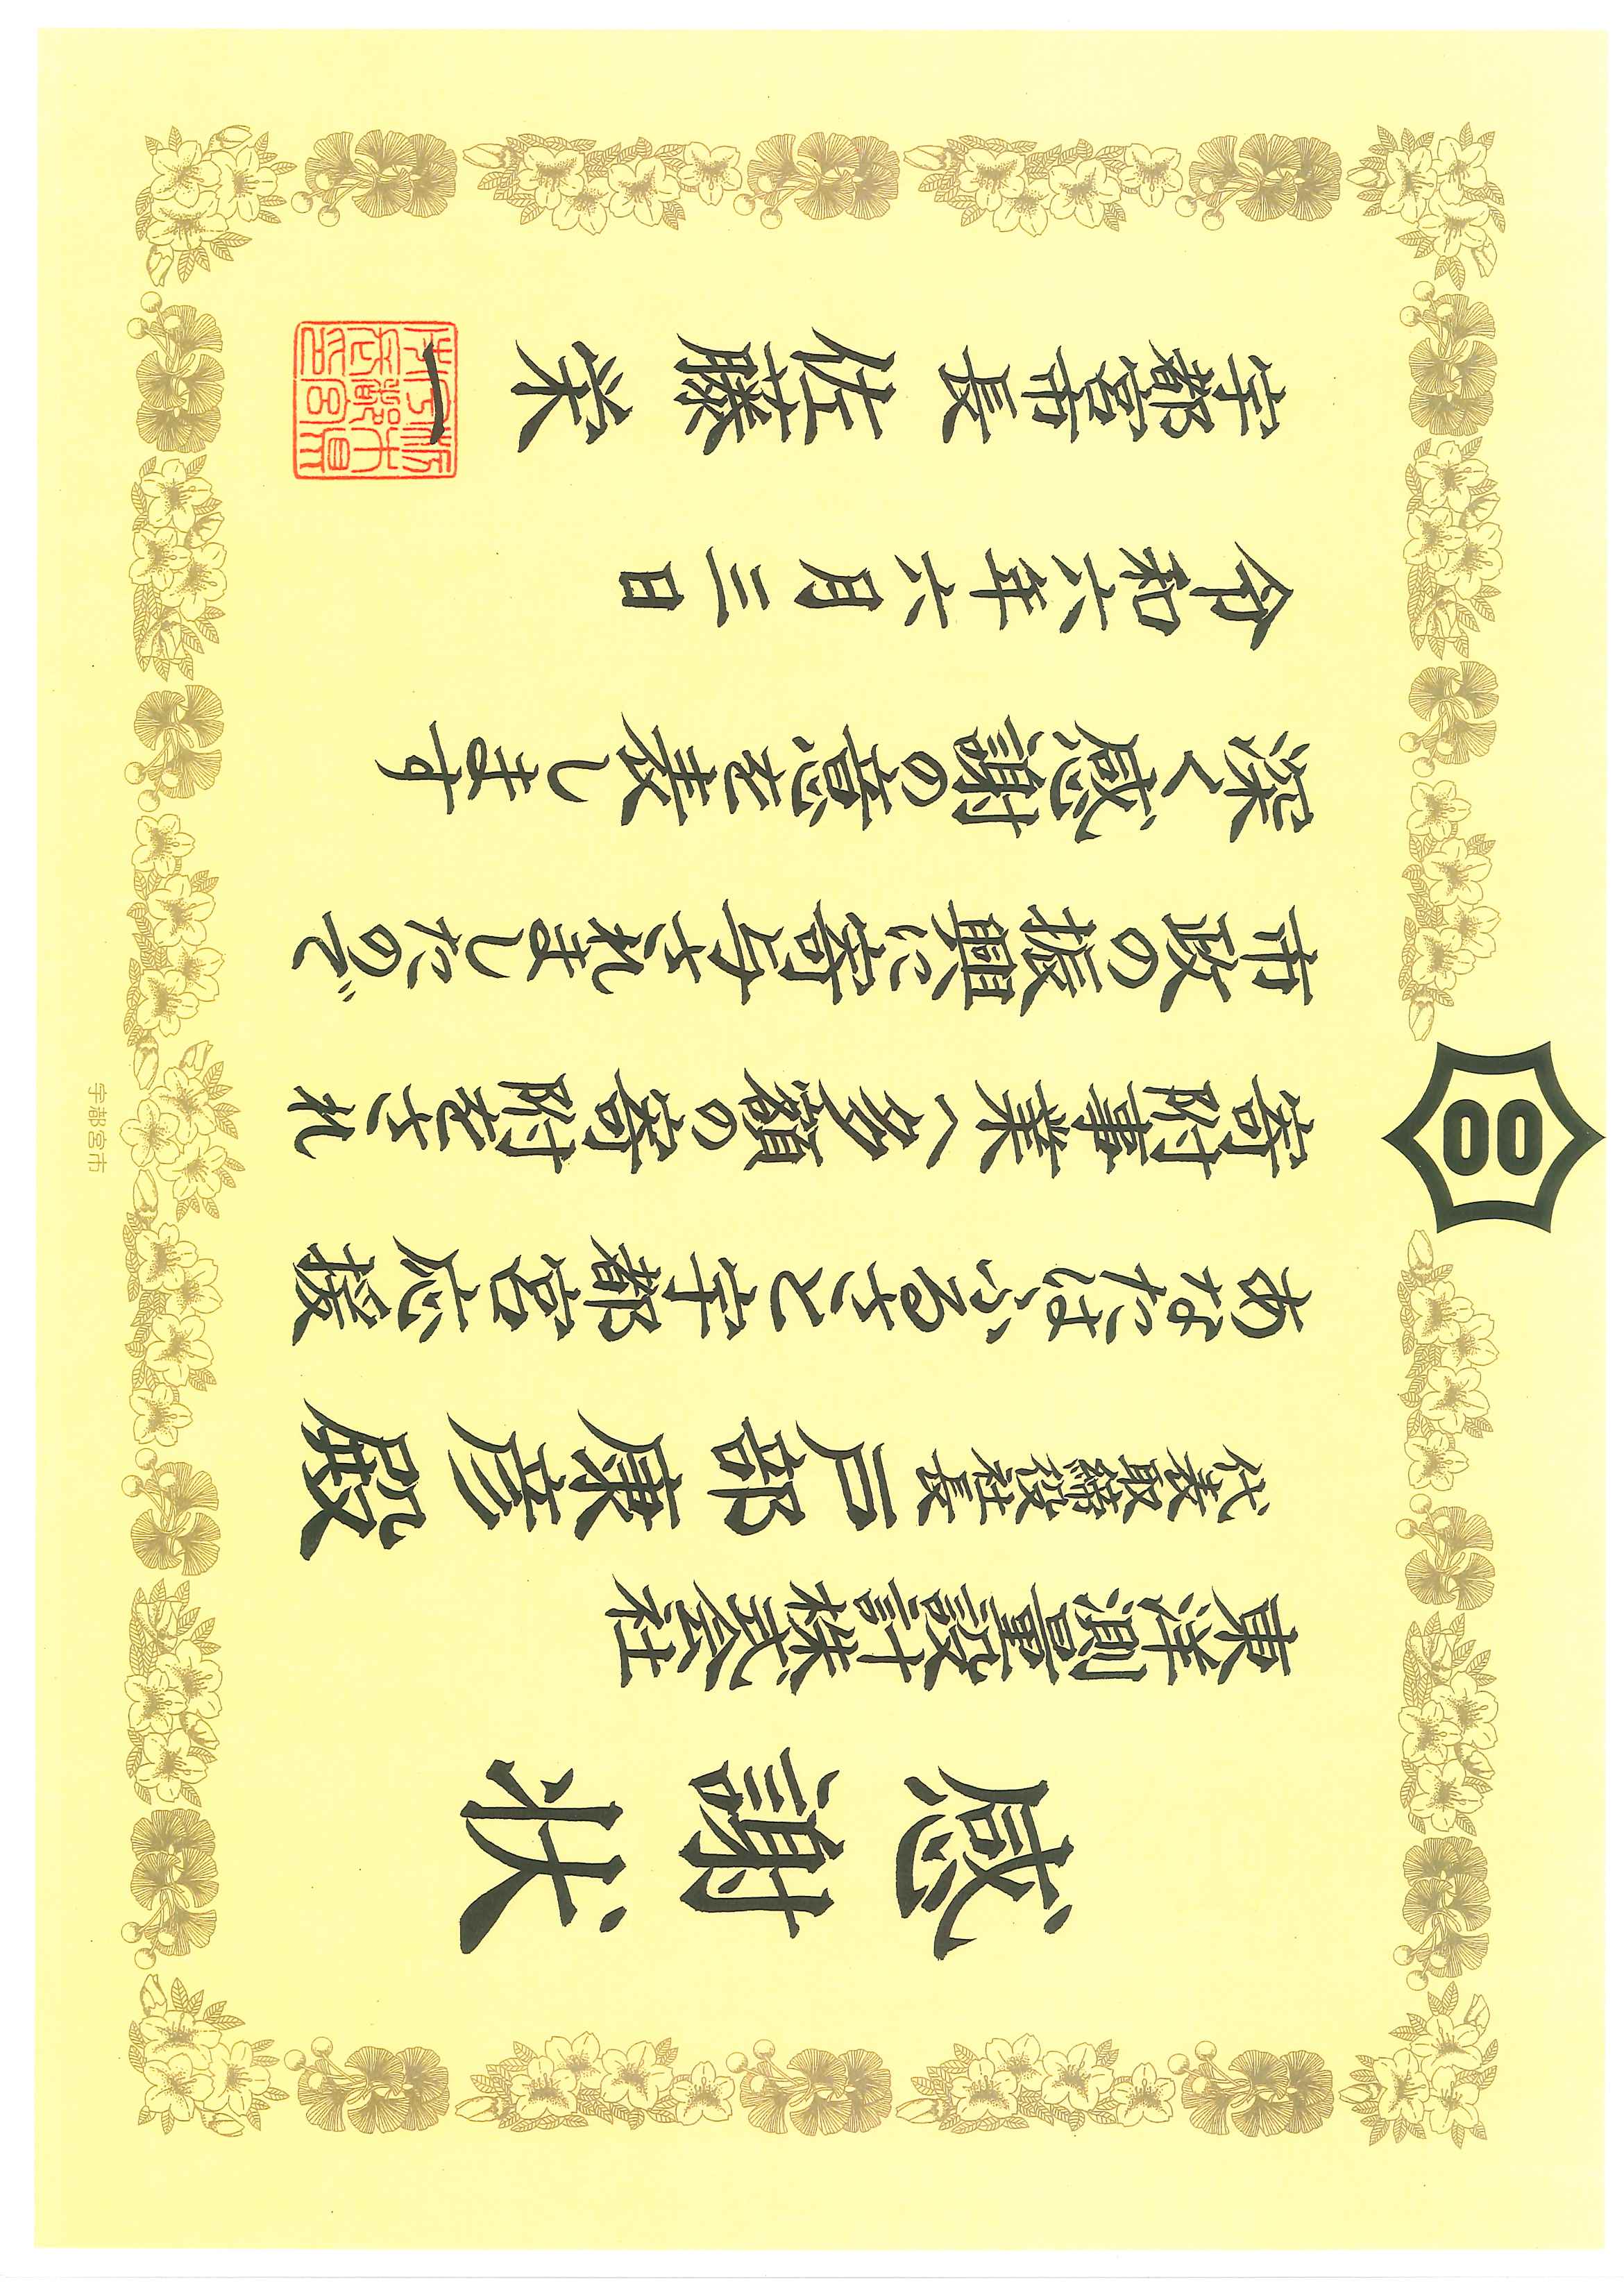 感謝状
東洋測量設計株式会社
代表取締役社長 戸部康彦殿
あなたはふるさと宇都宮応援
寄附事業へ多額の寄附をされ
市政の振興に寄与されましたので
深く感謝の意を表します
令和六年六月三日
宇都宮市長 佐藤栄一
宇都宮市